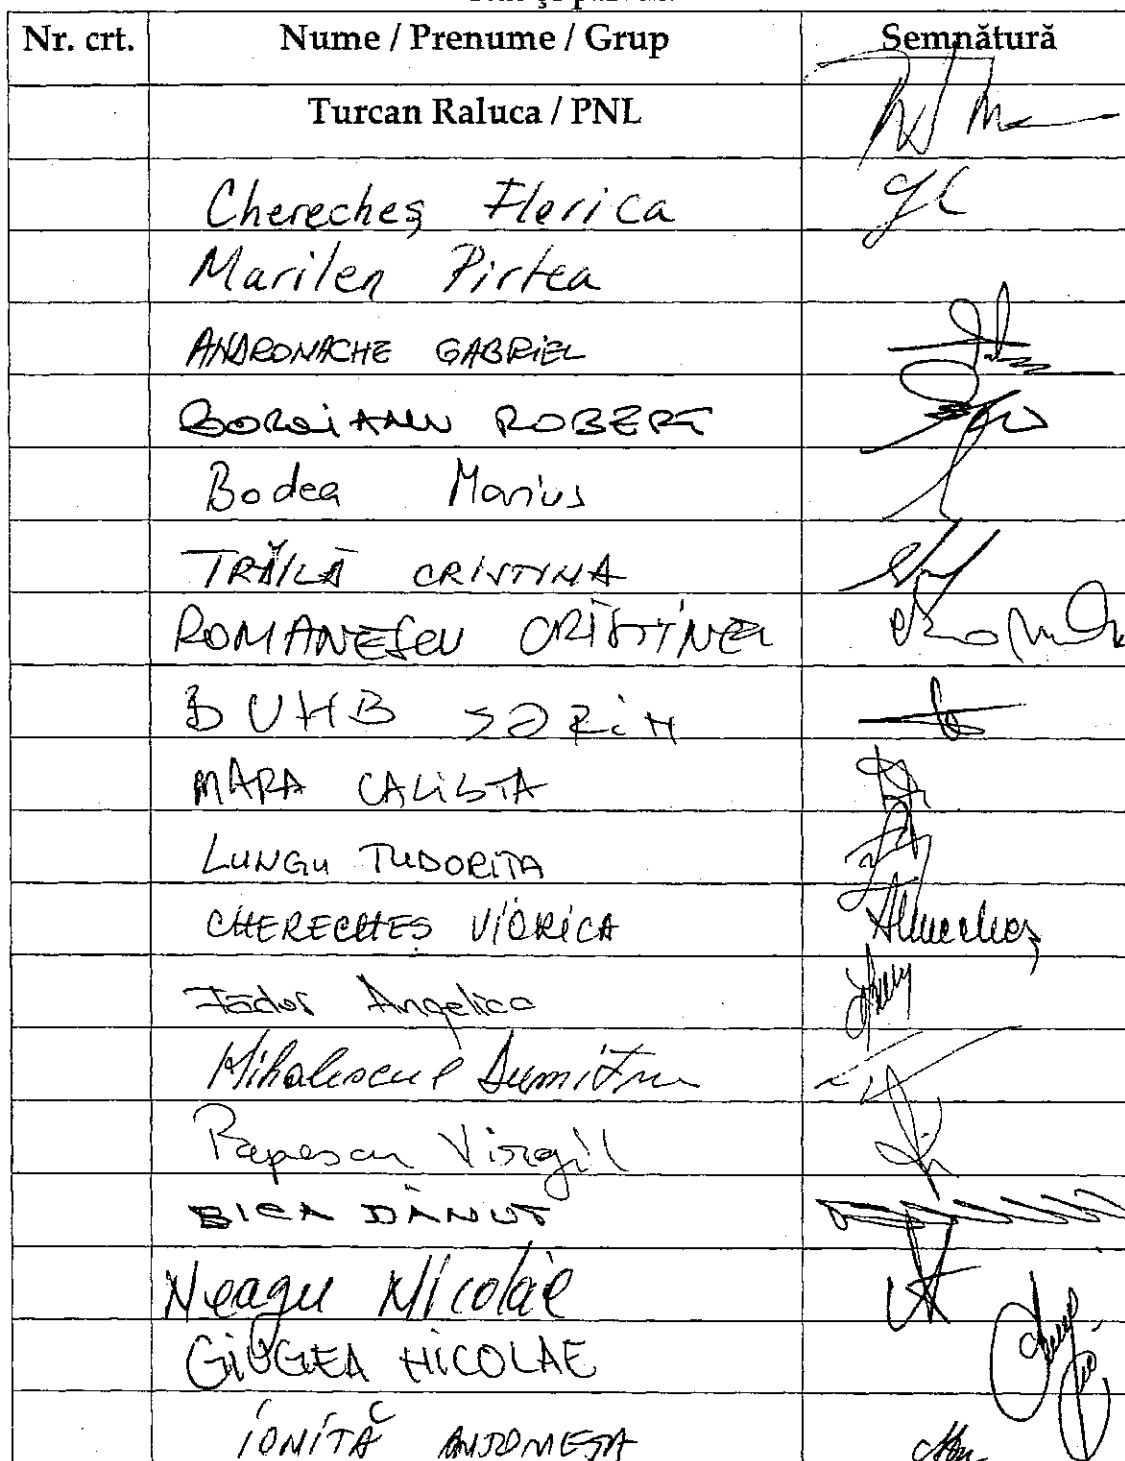 Nr. crt. Nume / Prenume / Grup Semnătură
Turcan Raluca / PNL
Cherecheș Florica
Marilen Pirtea
ANDRONACHE GABRIEL
BOROIANU ROBERT
Bodea Marius
TRĂILĂ CRISTINA
ROMANESCU CRISTINEL
BUHB SORIN
MARA CALISTA
LUNGU TUDORIȚA
CHERECHEȘ VIORICA
Fădor Angelica
Mihalescul Dumitru
Popescu Virgil
BICA DĂNUȚ
Neagu Nicolae
GIUGEA NICOLAE
IONIȚĂ ANTONETA